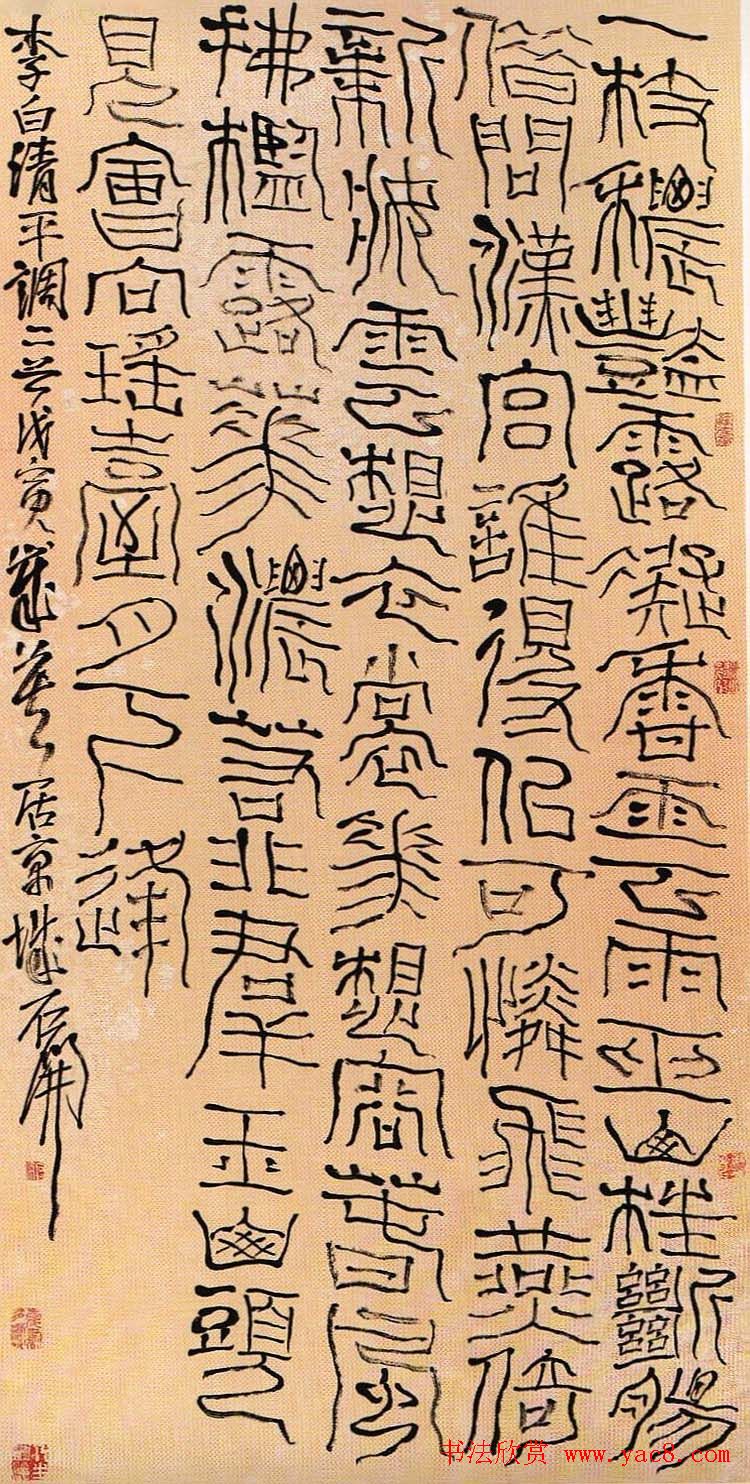 一枝穠豔露凝香雲雨巫山枉斷腸
借問漢宮誰得似可憐飛燕倚
新妝雲想衣裳花想容春風
拂檻露華濃若非羣玉山頭
見會向瑤臺月下逢
李白清平調二首戊寅歲居京城石開
书法欣赏 www.yac8.com